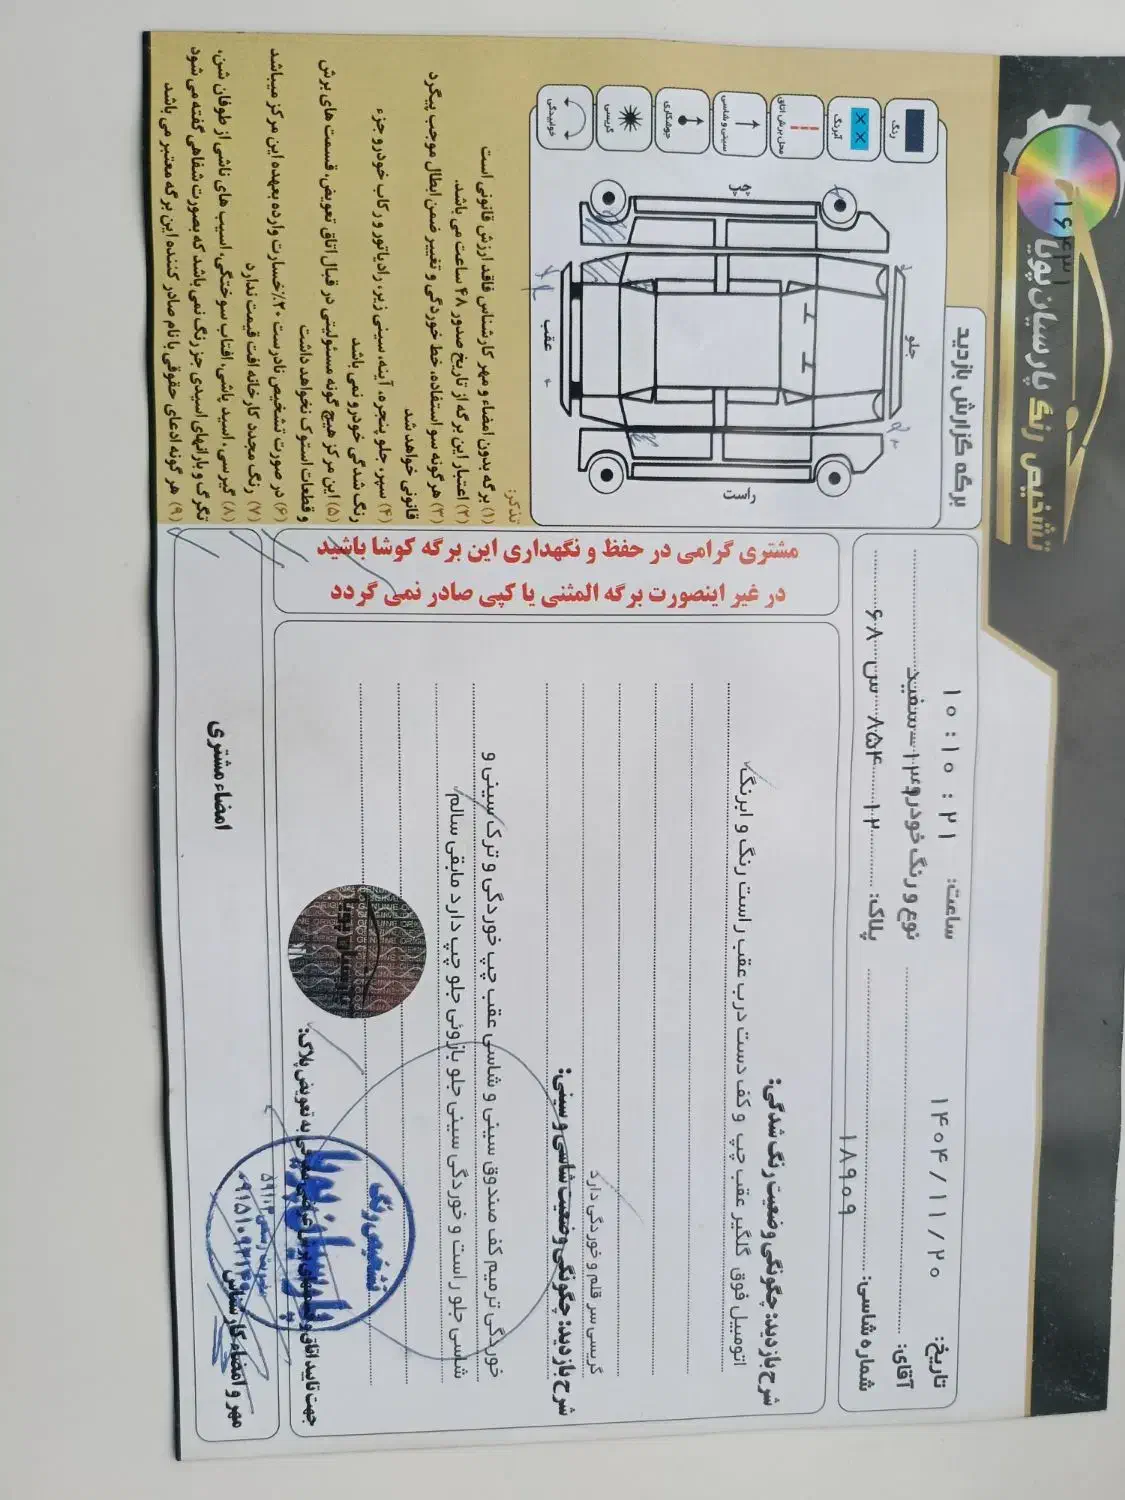 تشخیص رنگ پارسیان پویا
۱۶۴۳۱
برگه گزارش بازدید
رنگ
آبرنگ
محل برش اتاق
سینی و شاسی
جوشکاری
گریسی
خوابیدگی
جلو
عقب
راست
چپ
تاریخ: ۱۴۰۴/۱۱/۲۰
ساعت: ۱۰:۱۰:۲۱
آقای:
نوع و رنگ خودرو: سفید
شماره شاسی: ۱۸۹۰۹
پلاک: ۱۲ ۸۵۴ س ۶۸
تذکر:
(۱) برگه بدون امضاء و مهر کارشناس فاقد ارزش قانونی است
(۲) اعتبار این برگه از تاریخ صدور ۴۸ ساعت می باشد.
(۳) هرگونه سو استفاده، خط خوردگی و تغییر ضمن ابطال موجب پیگرد
قانونی خواهد شد
(۴) سپر، جلو پنجره، آینه، سینی زیر، رادیاتور و رکاب خودرو جزء
رنگ شدگی خودرو نمی باشد
(۵) این مرکز هیچ گونه مسئولیتی در قبال اتاق تعویض، قسمت های برش
و قطعات استوک نخواهد داشت
(۶) در صورت تشخیص نادرست ۲۰٪ خسارت وارده بعهده این مرکز میباشد
(۷) رنگ مجدد کارخانه افت قیمت ندارد
(۸) گیرسی، اسید پاشی، افتاب سوختگی، اسیب های ناشی از طوفان شن،
تگرگ و بارانهای اسیدی جز رنگ نمی باشد که بصورت شفاهی گفته می شود
(۹) هر گونه ادعای حقوقی با نام صادر کننده این برگه معتبر می باشد
مشتری گرامی در حفظ و نگهداری این برگه کوشا باشید
در غیر اینصورت برگه المثنی یا کپی صادر نمی گردد
شرح بازدید: چگونگی وضعیت رنگ شدگی:
اتومبیل فوق گلگیر عقب چپ و کف دست درب عقب راست رنگ و ابرنگ
گریسی سر قلم و خوردگی دارد
شرح بازدید: چگونگی وضعیت شاسی و سینی:
خوردگی ترمیم کف صندوق سینی و شاسی عقب چپ خوردگی و ترک سینی و
شاسی جلو راست و خوردگی سینی جلو بازوئی جلو چپ دارد مابقی سالم
جهت تایید اتاق و به تعویض پلاک:
تشخیص رنگ
پارسیان پویا
مهر و امضاء کارشناس
امضاء مشتری